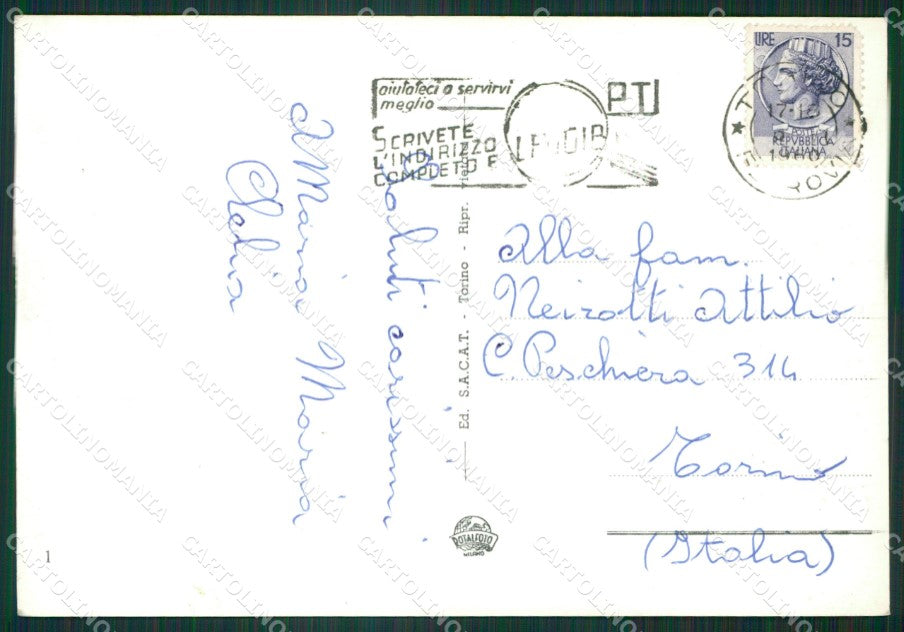 LIRE 15
POSTE
REPVBBLICA
ITALIANA
17-18
1960
aiutateci a servirvi
meglio
P.T
SCRIVETE
L'INDIRIZZO
COMPLETO E
Saluti carissimi
Maria Maria
Clelia
Ed. S.A.C.A.T. - Torino - Ripr.
Alla fam.
Neirotti Attilio
C. Peschiera 314
Torino
(Italia)
ROTALFOTO
MILANO
1
CARTOLINOMANIA